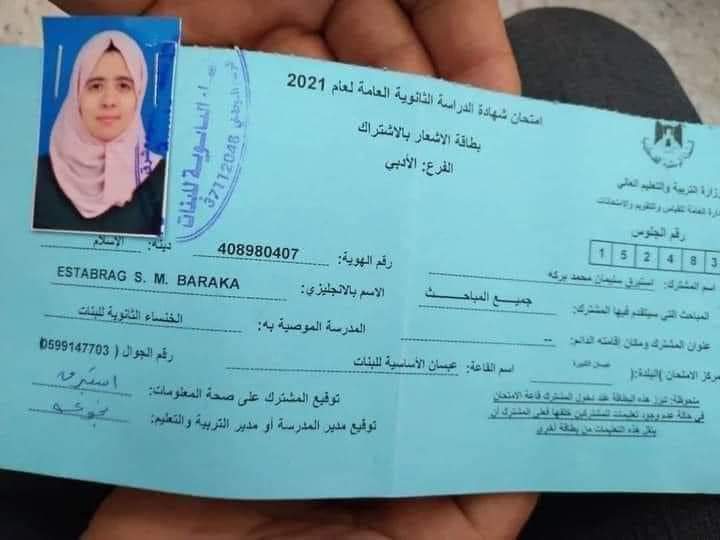 امتحان شهادة الدراسة الثانوية العامة لعام 2021
بطاقة الاشعار بالاشتراك
الفرع: الأدبي
زارة التربية والتعليم العالي
دارة العامة للقياس والتقويم والامتحانات
رقم الجلوس
1 5 2 4 8 3
اسم المشترك: استبرق سليمان محمد بركه
رقم الهوية: 408980407 دينه: الاسلام
المباحث التي سيتقدم فيها المشترك: جميع المباحث
الاسم بالانجليزي: ESTABRAG S. M. BARAKA
عنوان المشترك ومكان إقامته الدائم: --
المدرسة الموصية به: الخنساء الثانوية للبنات
مركز الامتحان )البلدة:( عبسان الكبيرة
اسم القاعة: عبسان الأساسية للبنات
رقم الجوال ( 0599147703)
توقيع المشترك على صحة المعلومات: استبرق
توقيع مدير المدرسة أو مدير التربية والتعليم:
ملحوظة: تبرز هذه البطاقة عند دخول المشترك قاعة الامتحان
في حالة عدم وجود تعليمات للمشتركين خلفها فعلى المشترك أن
هذه التعليمات من بطاقة أخرى
الثانوية للبنات